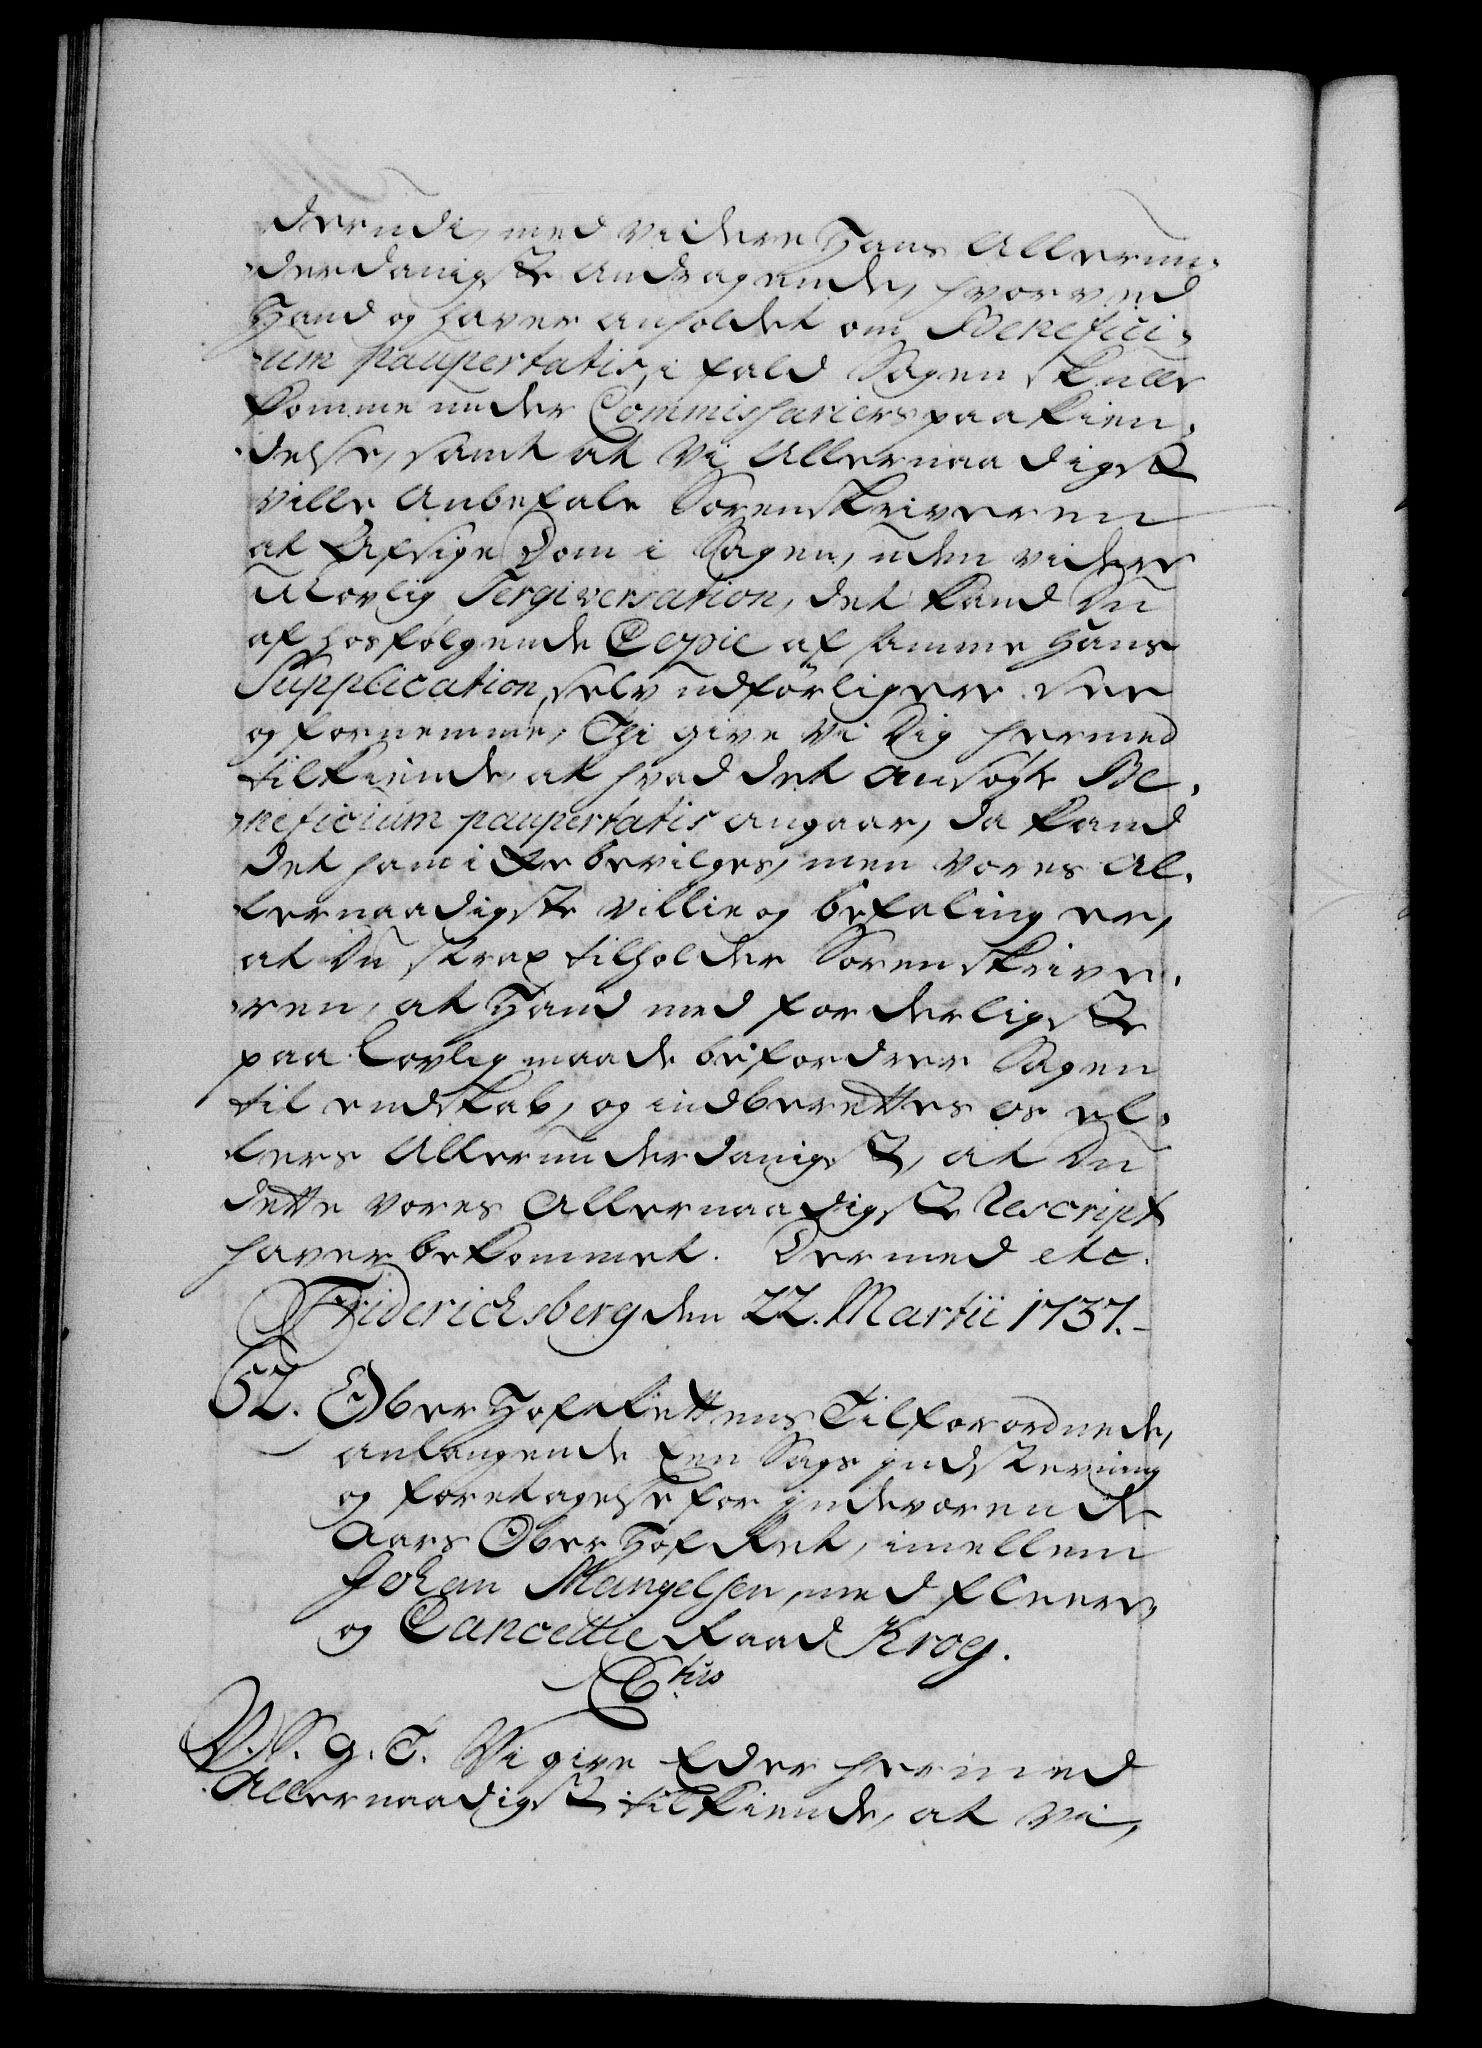 derudi, med videre Hans Allerun-
derdanigste Andragende, hvorved
Hand og haver anholdet om Benefici-
um paupertatis, i fald Sagen skulle
komme under Commissariers paakien-
delse, samt at Vi Allernaadigst
ville Anbefale Sorenskriveren
at Afsige Dom i Sagen, uden videre
Ulovlig Tergiversation, det kand Du
af hosfølgende Copie af samme Hans
Supplication, selv udførligere see
og fornemme, Thi give Vi Dig hermed
tilkiende, at hvad det Ansøgte Be-
neficium paupertatis angaar, da kand
det ham icke bevilges, men Vores Al-
lernaadigste Villie og befaling er,
at Du strax tilholder Sorenskrive-
ren, at Hand med forderligste
paa Lovlig maade befordrer Sagen
til endskab, og indberettes os el-
lers Allerunderdanigst, at Du
dette Vores Allernaadigste Rescript
haver bekommet. Dermed etc.
Friderichsberg den 22. Martii 1737.
52. Ober Hof Rettens Tilforordnede,
anlangende Een Sags indstevning
og foretagelse for indeværende
Aars Ober Hof Ret, imellem
Johan Mangelsen, med fleere,
og Cancellie Raad Krog.
C 6tus
V. S. G. T. Vi give Eder hermed
Allernaadigst tilkiende, at Vi,